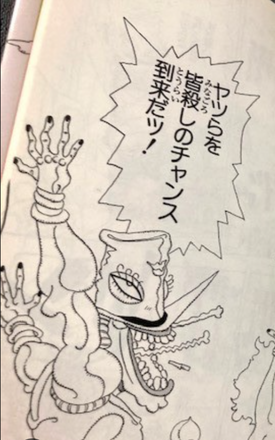 ヤツらを
皆殺しのチャンス
到来だッ！